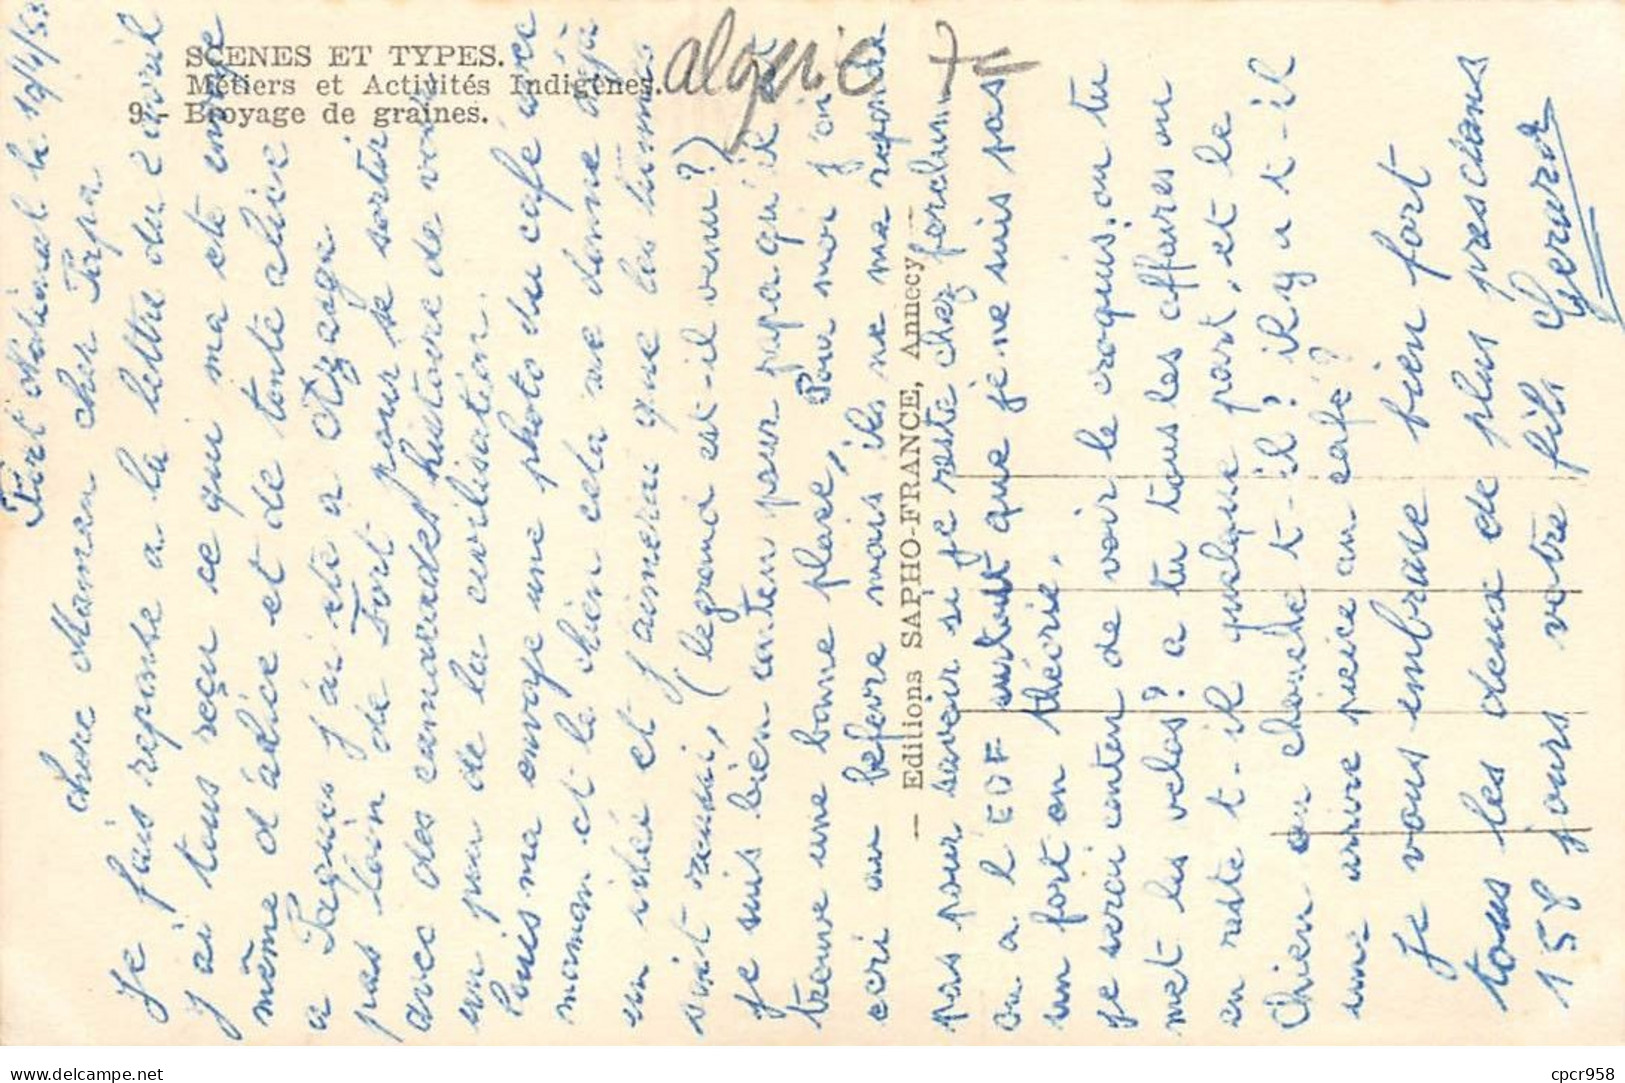 SCENES ET TYPES.
Métiers et Activités Indigènes.
9 - Broyage de graines.
algerie 7
— Editions SAPHO-FRANCE, Annecy —
Fort National le 19/4/53
chere Maman cher Papa
Je fais reponse a la lettre du 2 avril
j ai tous reçu ce qui ma ete envoye
même d'alice et de tante alice
a Paques j'ai ete a Azazga
pas loin de Fort pour se sortir
avec des camarades histoire de voir
un peu de la civilisation.
Louis ma envoye une photo du café avec
maman et le chien cela me donne deja
un idée et j aimerai que les tiennes
soit reussi, (legrand est-il venu?)
je suis bien conten pour papa qu'il
trouve une bonne place, Pour moi j'en
ecri au befevre mais ils ne me reponde
pas pour savoir si je reste chez forclum
ou a l EDF surtout que je ne suis pas
un fort en théorie.
je serai conten de voir le croquis, ou tu
met les velos? a tu tous les affaires ou
en reste t-il quelque part, et le
chien ou chouche t-il? il y a t-il
une autre pieice au café?
Je vous embrasse bien fort
tous les deux de plus presdans
158 jours votre fils Gerard
cpcr958
www.delcampe.net